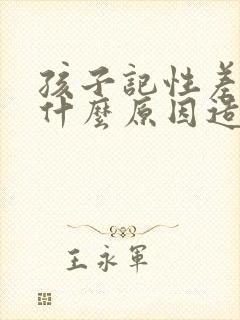 孩子記性差
什麼原因造
王永軍